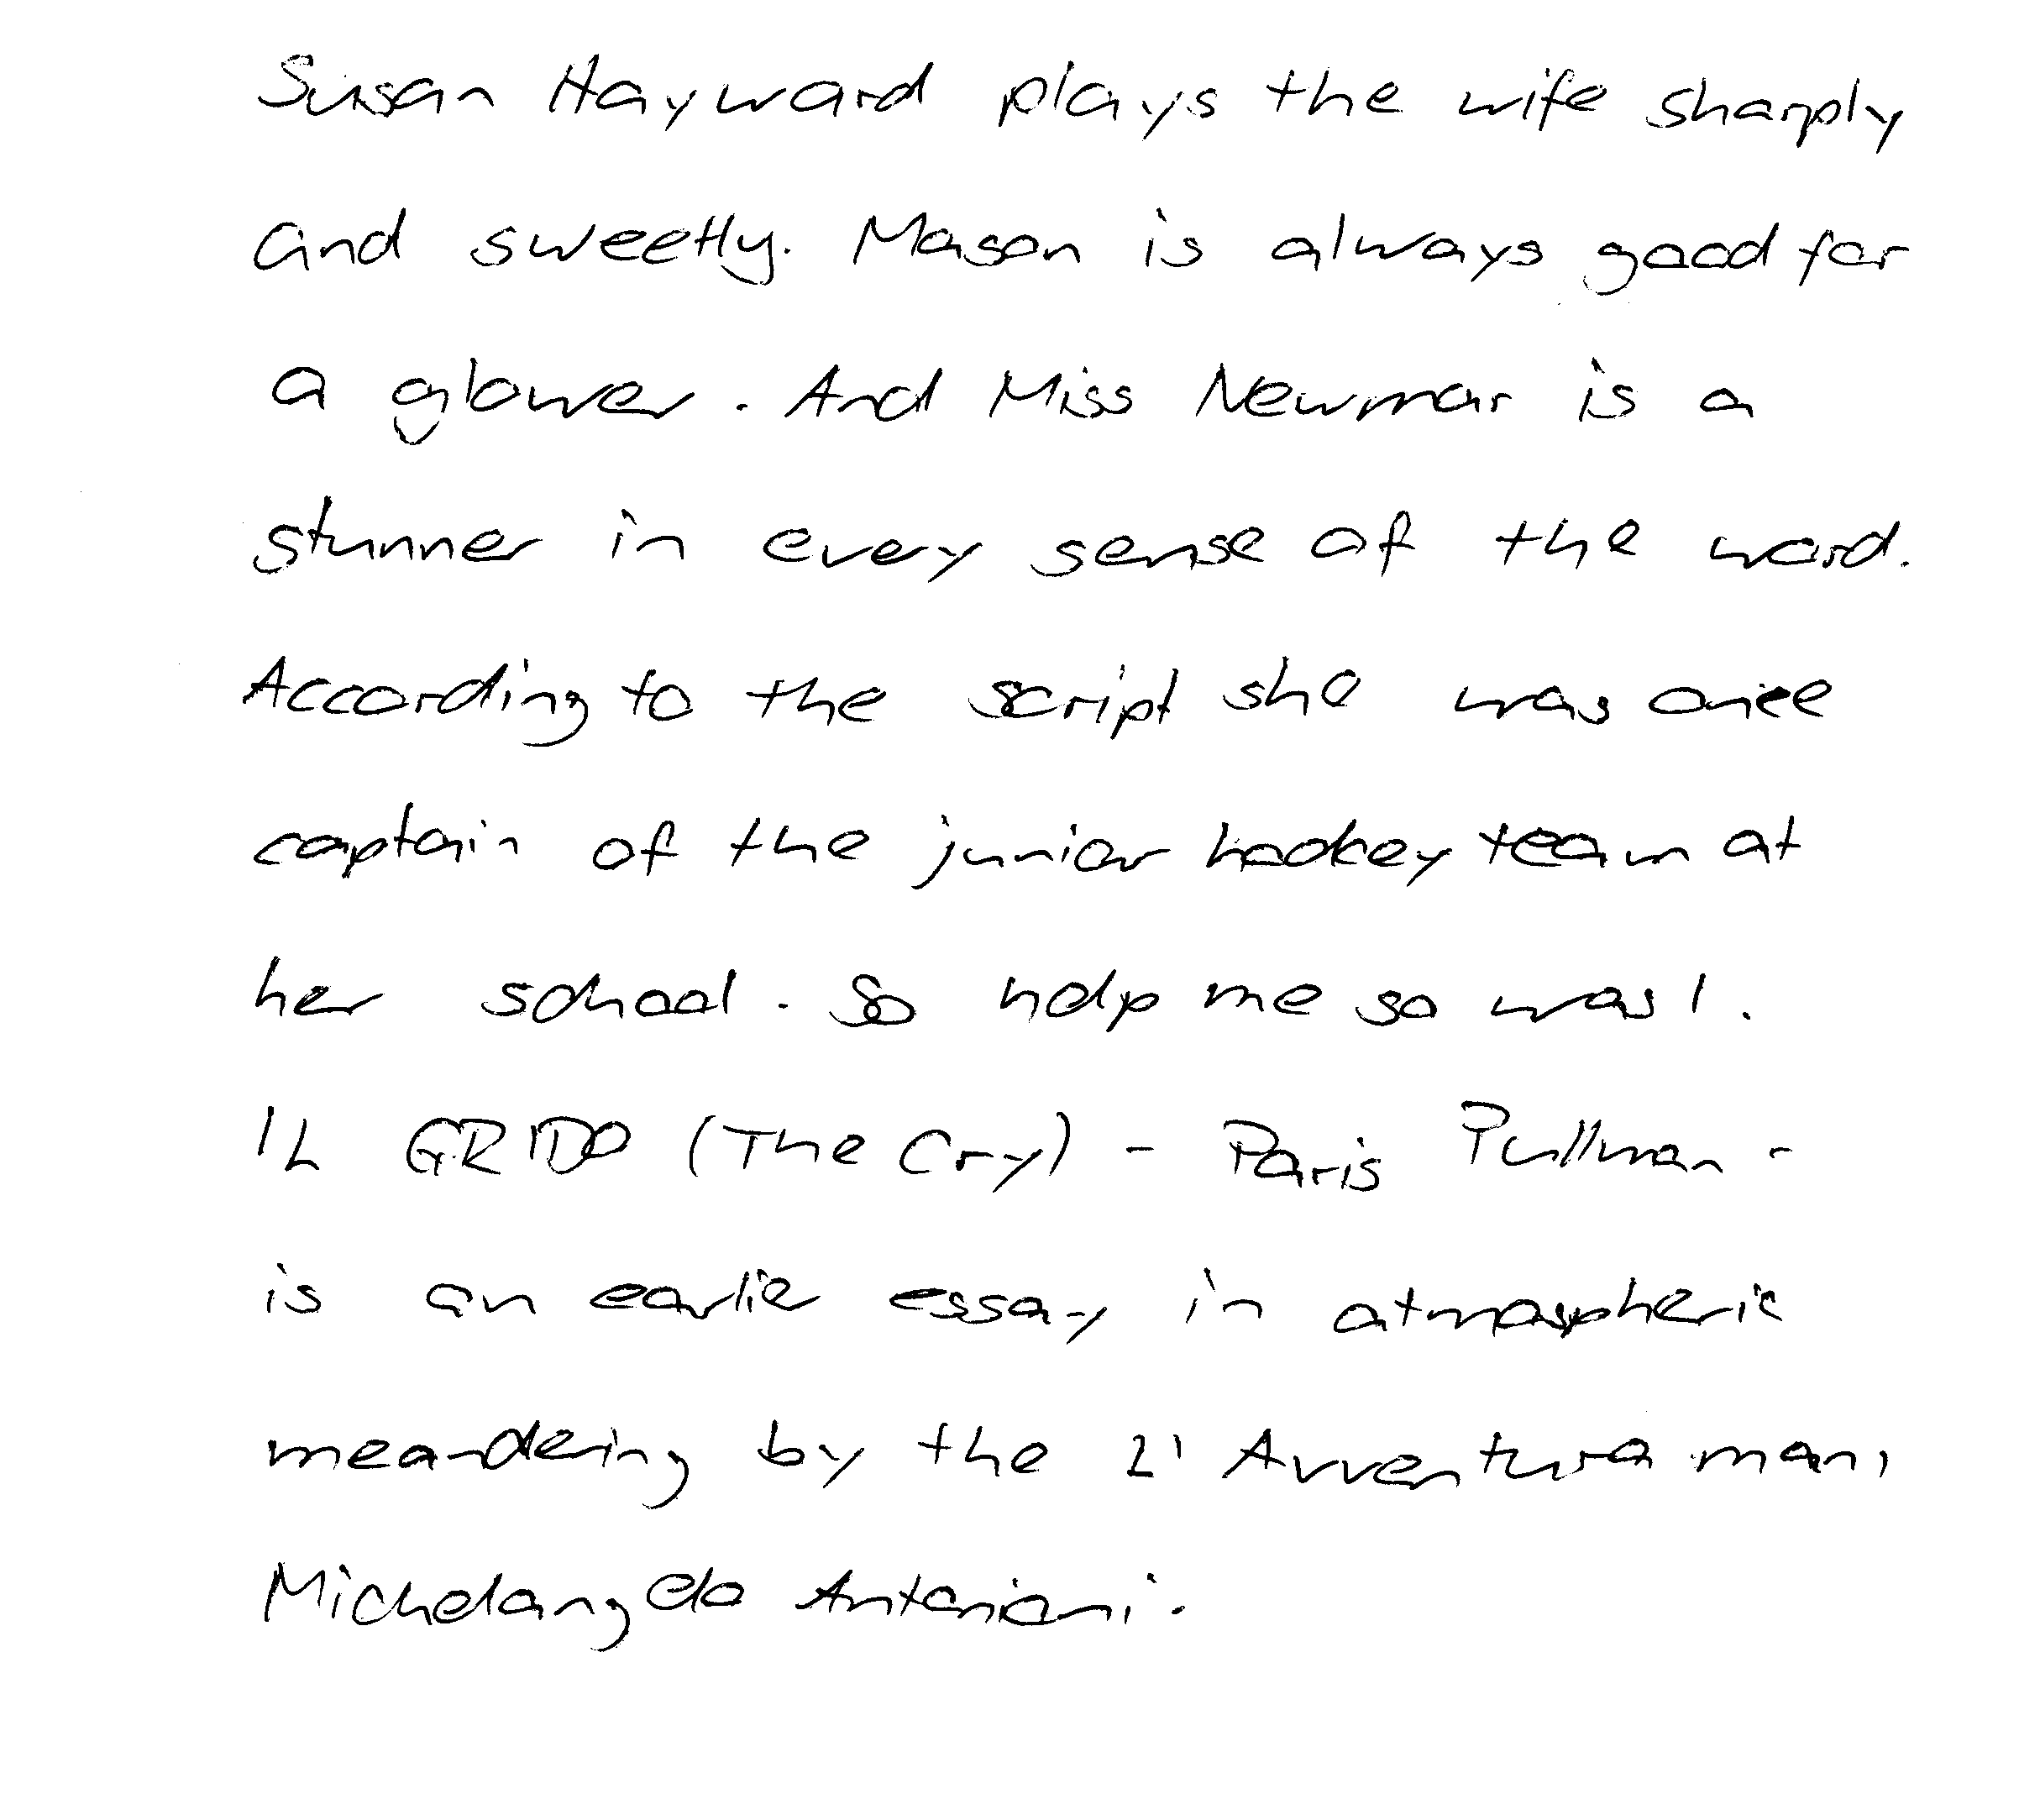 Susan Hayward plays the wife sharply
and sweetly. Mason is always good for
a glower. And Miss Newmar is a
stunner in every sense of the word.
According to the script she was once
captain of the junior hockey team at
her school. So help me so was I.
IL GRIDO (The Cry) - Paris Pullman -
is an earlier essay in atmospheric
meandering by the L'Avventura man,
Michelangelo Antonioni.